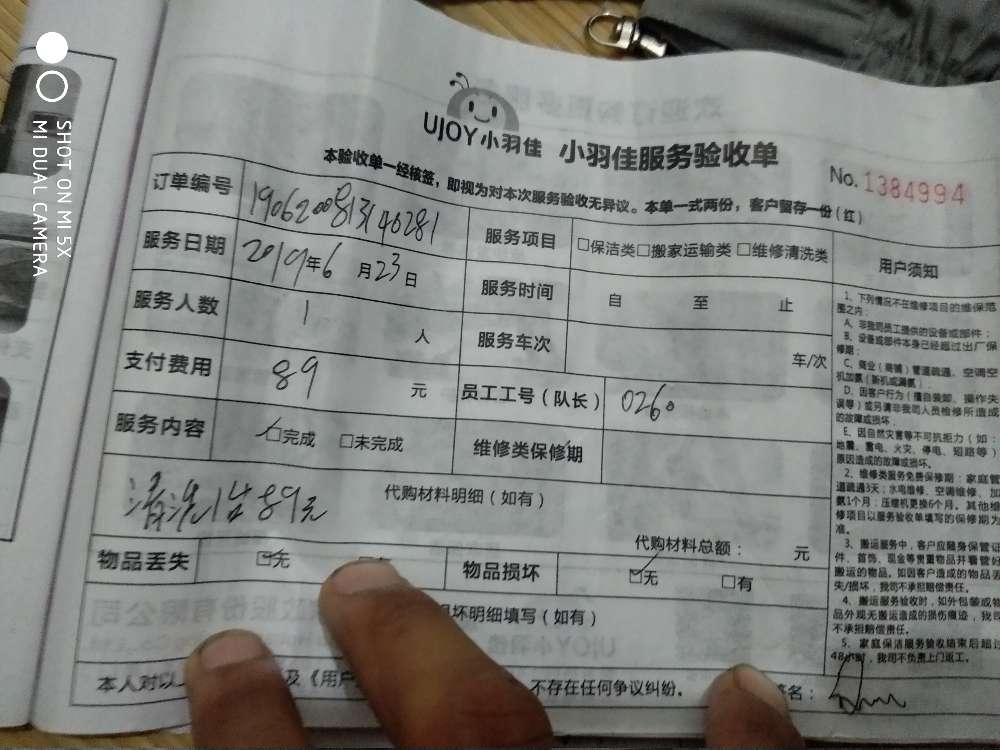 SHOT ON MI 5X
MI DUAL CAMERA
UJOY小羽佳 小羽佳服务验收单
No. 1384994
本验收单一经核签，即视为对本次服务验收无异议。本单一式两份，客户留存一份（红）
订单编号 服务项目 □保洁类□搬家运输类 □维修清洗类
服务日期 2019年6月23日 服务时间 自 至 止
服务人数 1 人 服务车次 车/次
支付费用 89 元 员工工号（队长） 0260
服务内容 □完成 □未完成 维修类保修期
清洗1台89元 代购材料明细（如有）
代购材料总额： 元
物品丢失 □无 物品损坏 □无 □有
坏明细填写（如有）
本人对以 及《用户 不存在任何争议纠纷。 名：
用户须知
1、下列情况不在维修项目的维保范
围之内：
A、非我司员工提供的设备或部件；
B、设备或部件本身已经超过出厂保
修期；
C、商业（商铺）管道疏通、空调空
机加氟（新机或漏氟）
D、因客户行为（擅自装卸、操作失
误等）或另请非我司人员检修所造成
的故障或损坏．
E、因自然灾害等不可抗拒力（如：
地震、雷电、火灾、停电、短路等）
原因造成的故障或损坏。
2、维修类服务免费保修期：家庭管
道疏通3天；水电维修、空调维修、加
氨1个月；压缩机更换6个月。其他维
修项目以服务验收单填写的保修期为
准。
3、搬运服务中，客户应随身保管证
件、首饰、现金等贵重物品并看管好
搬运的物品。如因客户造成的物品丢
失/损坏，我司不承担赔偿责任。
4、搬运服务验收时，如外包装或物
品外观无搬运造成的损伤痕迹，我司
不承担赔偿责任。
5、家庭保洁服务验收结束后超过
48小时，我司不负责上门返工。